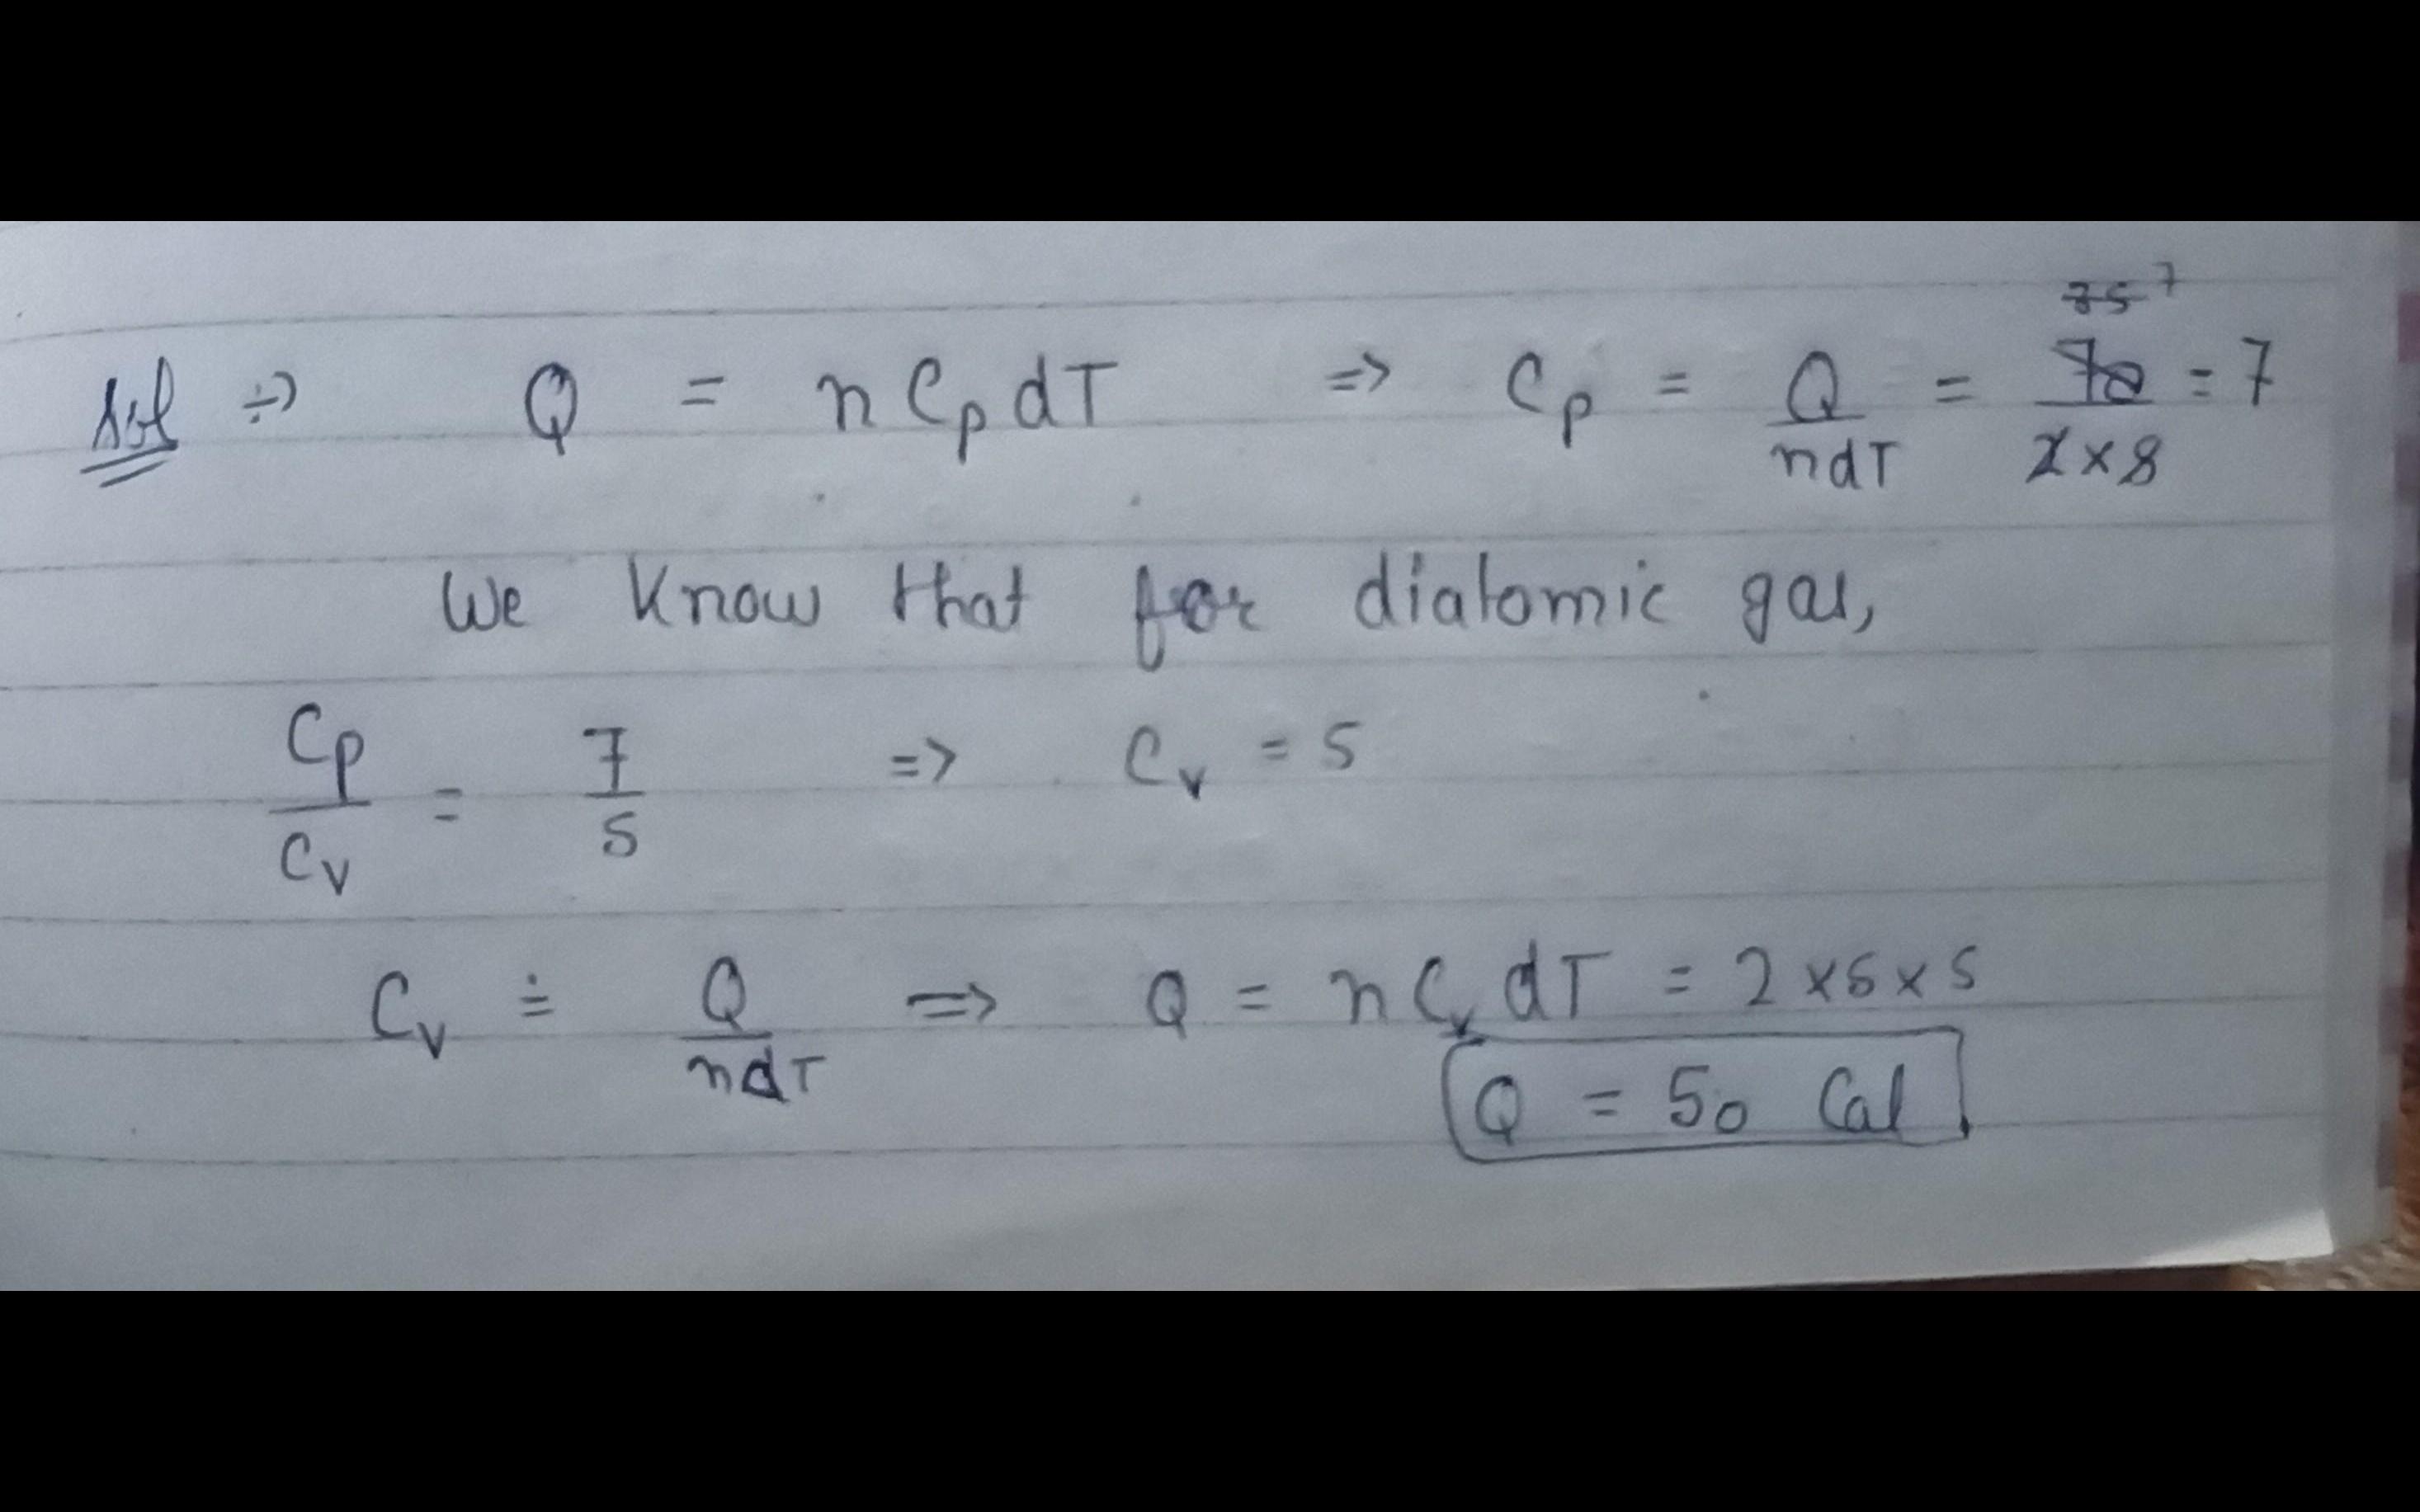 Sol ÷) Q = n Cp dT => Cp = Q/ndT = 70/2×5 = 7
35 7
We know that for diatomic gas,
Cp/Cv = 7/5 => Cv = 5
Cv = Q/ndT => Q = n Cv dT = 2 × 5 × 5
Q = 50 Cal